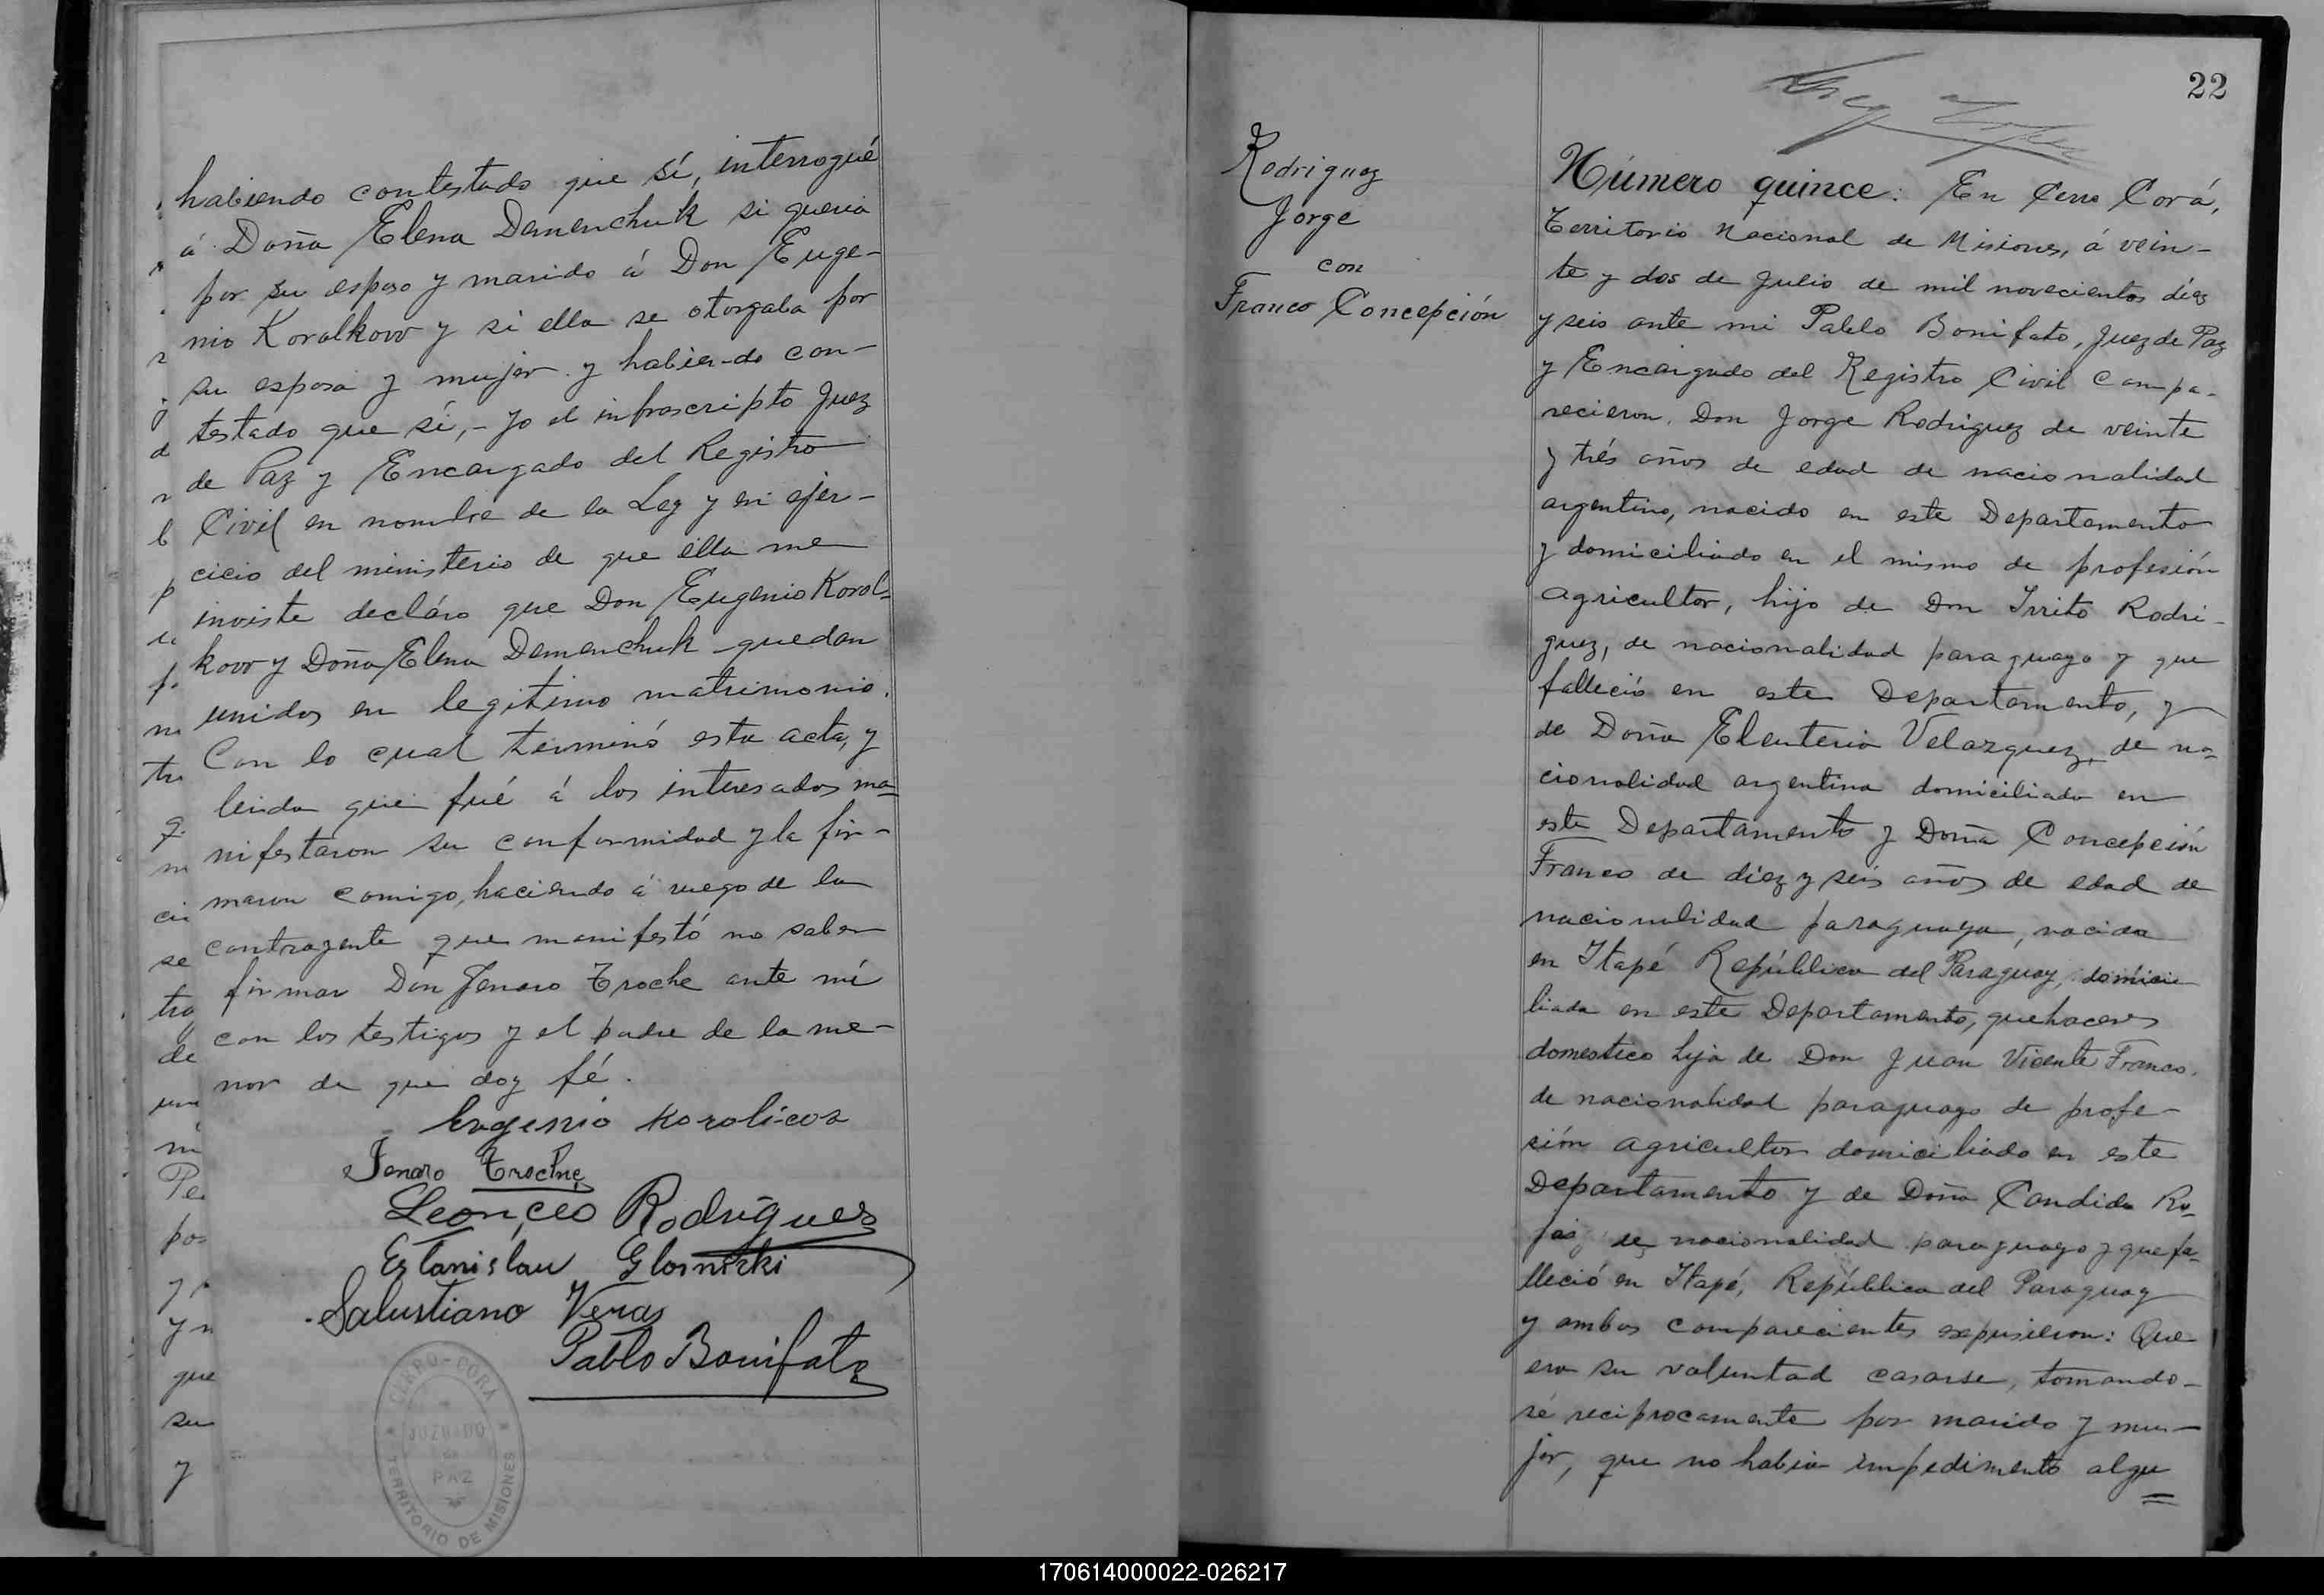 habiendo contestado que sí, interrogué
á Doña Elena Demenchuk si queria
por su esposo y marido á Don Euge-
nio Koralkow y si ella se otorgaba por
su esposa y mujer y habien-do con-
testado que sí,- yo el infrascripto Juez
de Paz y Encargado del Registro
Civil en nombre de la Ley y en ejer-
cicio del ministerio de que ella me
inviste decláro que Don Eugenio Korol-
kow y Doña Elena Demenchuk quedan
unidos en legitimo matrimonio.
Con lo cual terminó esta acta, y
leida que fué á los interesados ma-
nifestaron su conformidad y la fir-
maron comigo, haciendo á ruego de la
contrayente que manifestó no saber
firmar Don Jenaro Troche ante mi
con los testigos y el padre de la me-
nor de que doy fé.
Eugenio Korolicoz
Jenaro Troche
Leoncio Rodrigues
Estanislau
Salustiano Veras
Pablo Bonifato
CERRO-CORA
JUZGADO
de
PAZ
TERRITORIO DE MISIONES
22
Rodriguez
Jorge
con
Franco Concepción
Número quince: En Cerro Corá,
Territorio Nacional de Misiones, á vein-
te y dos de Julio de mil novecientos diez
y seis ante mi Pablo Bonifato, Juez de Paz
y Encargado del Registro Civil compa-
recieron. Don Jorge Rodriguez de veinte
y trés años de edad de nacionalidad
argentino, nacido en este Departamento
y domiciliado en el mismo de profesión
agricultor, hijo de Don Irrito Rodri-
guez, de nacionalidad paraguayo y que
falleció en este Departamento, y
de Doña Eleuteria Velazquez, de na-
cionalidad argentina domiciliada en
este Departamento y Doña Concepción
Franco de diez y seis años de edad de
nacionalidad paraguaya, nacida
en Itapé República del Paraguay, domici
liada en este Departamento, quehaceres
domestico hija de Don Juan Vicente Franco,
de nacionalidad paraguayo de profe-
sión agricultor domiciliado en este
Departamento y de Doña Candida Ro-
jas, de nacionalidad paraguayo y que fa-
lleció en Itapé, República del Paraguay
y ambos comparecientes expusieron: Que
era su voluntad casarse, tomando-
sé reciprocamente por marido y mu-
jer, que no habia impedimento algu
170614000022-026217